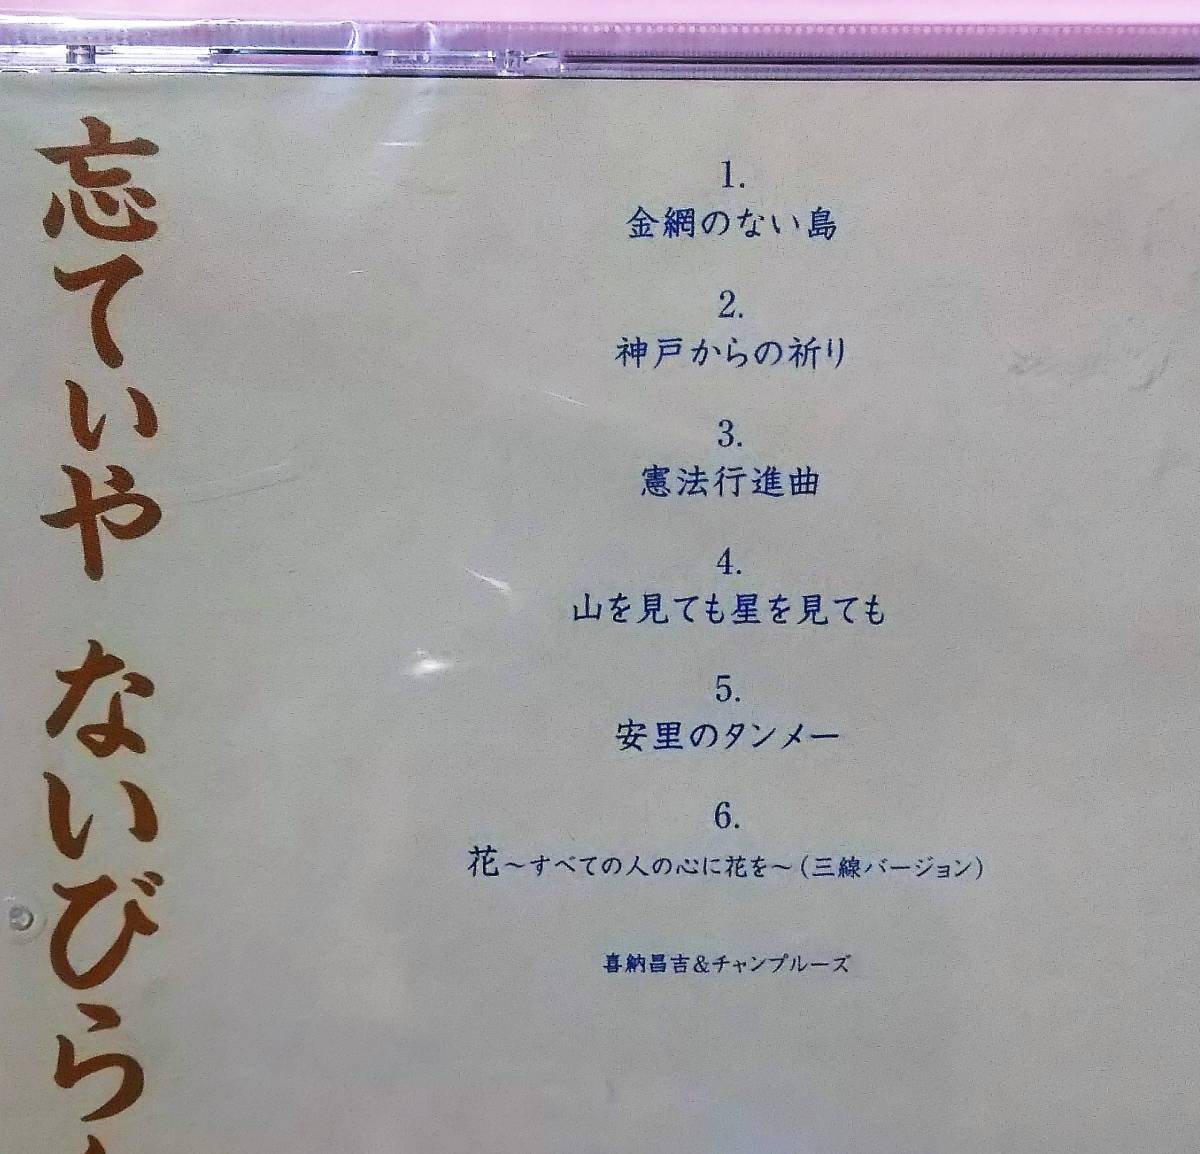 忘てぃや ないびらん
1.
金網のない島
2.
神戸からの祈り
3.
憲法行進曲
4.
山を見ても星を見ても
5.
安里のタンメー
6.
花～すべての人の心に花を～(三線バージョン)
喜納昌吉&チャンプルーズ